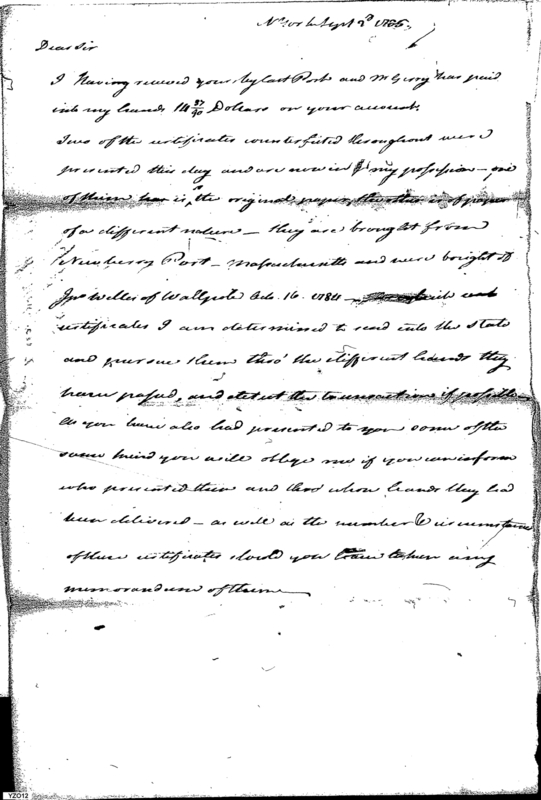 N York Sept 2d 1786
Dear Sir
I Having received yours by last Post and Mr Gerry has paid
into my hands 14 37/90 Dollars on your account.
Two of the certificates counterfeited throughout were
presented this day and are now in my possession — one
of them is the original paper, the other is of paper
of a different nature — they are brought from
Newberry Port — Massachusetts and were bought of
Jno Willis of Wallpole Octo. 16. 1784 —
certificates I am determined to send into the State
and pursue them thro' the different hands they
have passed, and detect the transaction if possible
As you have also had presented to you some of the
same kind you will oblige me if you can inform
who presented them and thro' whose hands they had
been delivered — as well as the number & circumstance
of these certificates should you have taken any
memorandum of them —
YZO12